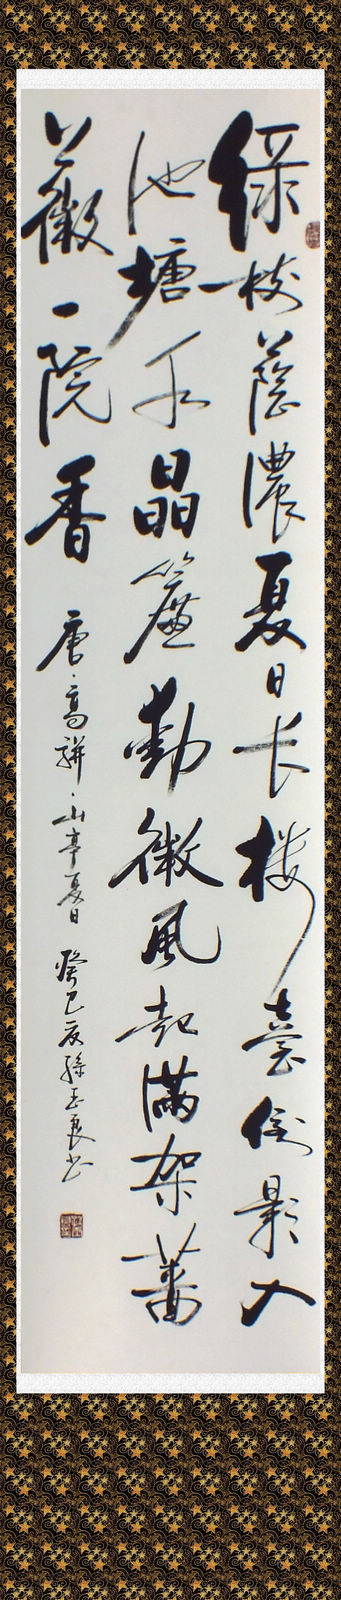 绿树蔭濃夏日长楼臺倒影入
池塘水晶簾動微風起滿架薔
薇一院香
唐·高駢·山亭夏日 癸巳夏孫良书